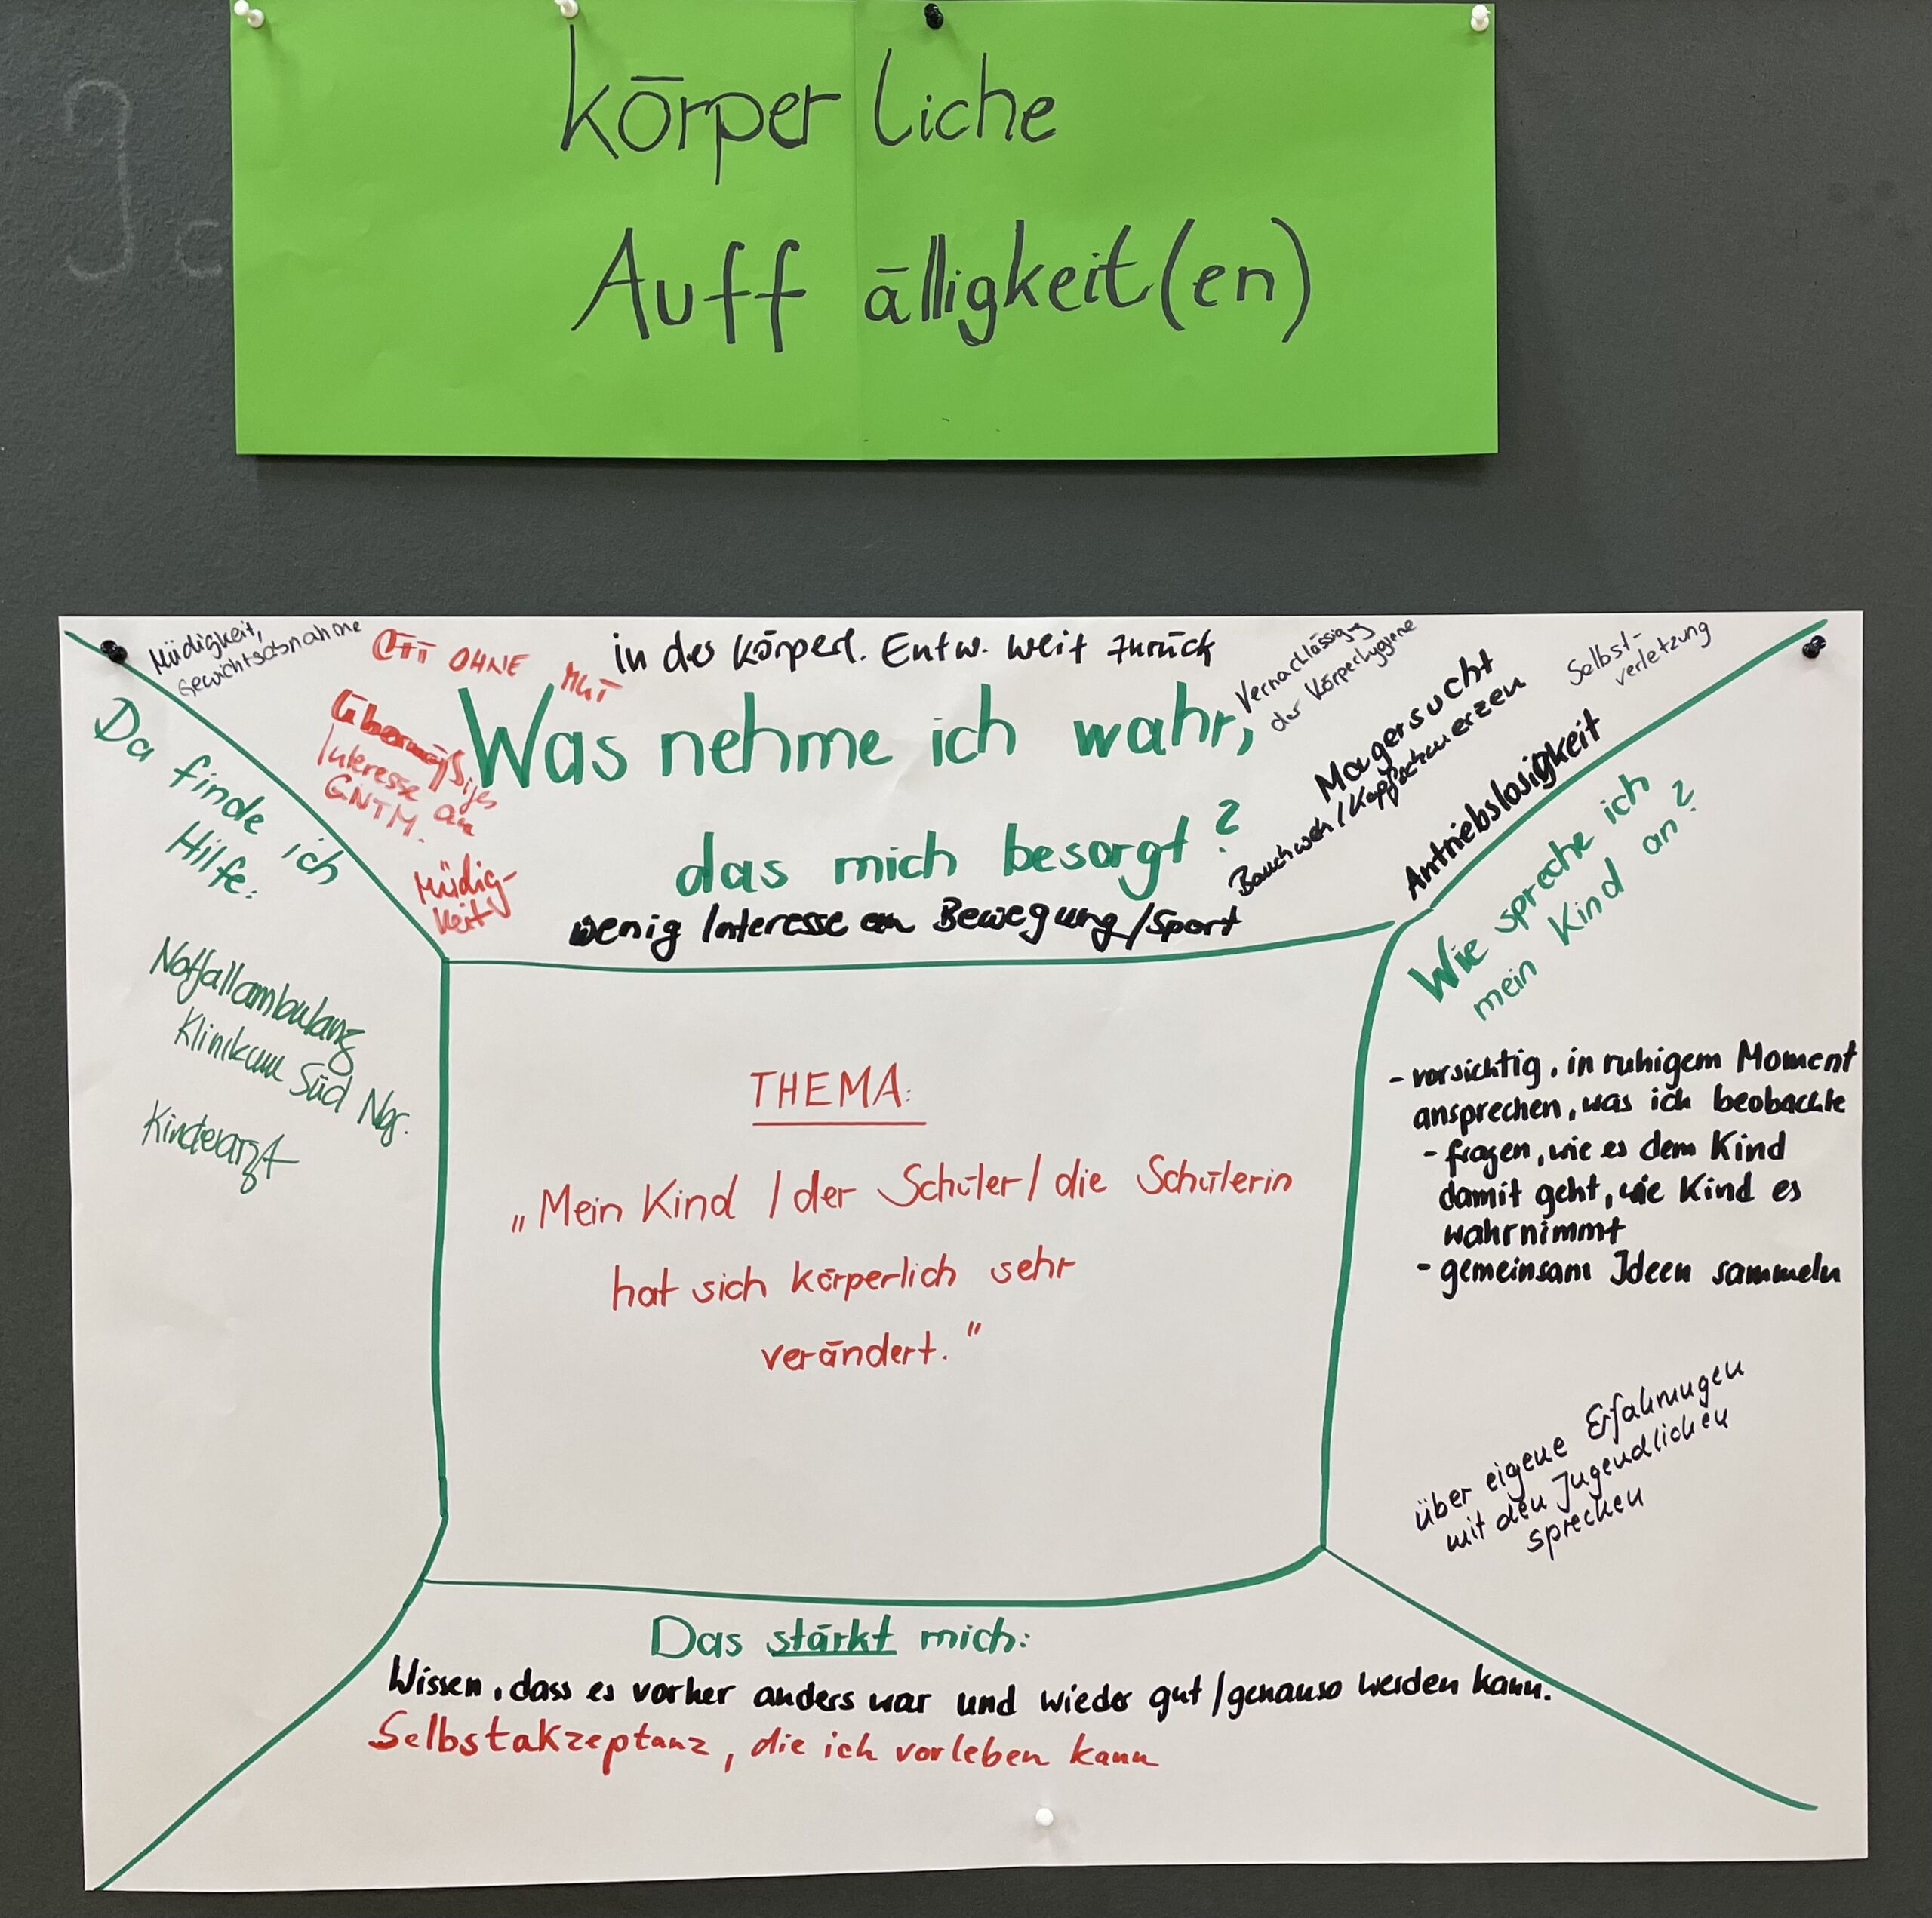 körperliche
Auffälligkeit(en)
Müdigkeit,
Gewichtsabnahme
OFT OHNE MUT
in der körperl. Entw. weit zurück
Vernachlässigung
der Körperhygiene
Selbst-
verletzung
Übermäßiges
Interesse an
GNTM.
Müdig-
keit
Was nehme ich wahr,
das mich besorgt?
Magersucht
Bauchweh/Kopfschmerzen
Antriebslosigkeit
wenig Interesse an Bewegung/Sport
Da finde ich
Hilfe:
Notfallambulanz
Klinikum Süd Nbg.
Kinderarzt
THEMA:
„Mein Kind / der Schüler / die Schülerin
hat sich körperlich sehr
verändert."
Wie spreche ich
mein Kind an?
- vorsichtig, in ruhigem Moment
ansprechen, was ich beobachte
- fragen, wie es dem Kind
damit geht, wie Kind es
wahrnimmt
- gemeinsam Ideen sammeln
über eigene Erfahrungen
mit den Jugendlichen
sprechen
Das stärkt mich:
Wissen, dass es vorher anders war und wieder gut/genauso werden kann.
Selbstakzeptanz, die ich vorleben kann